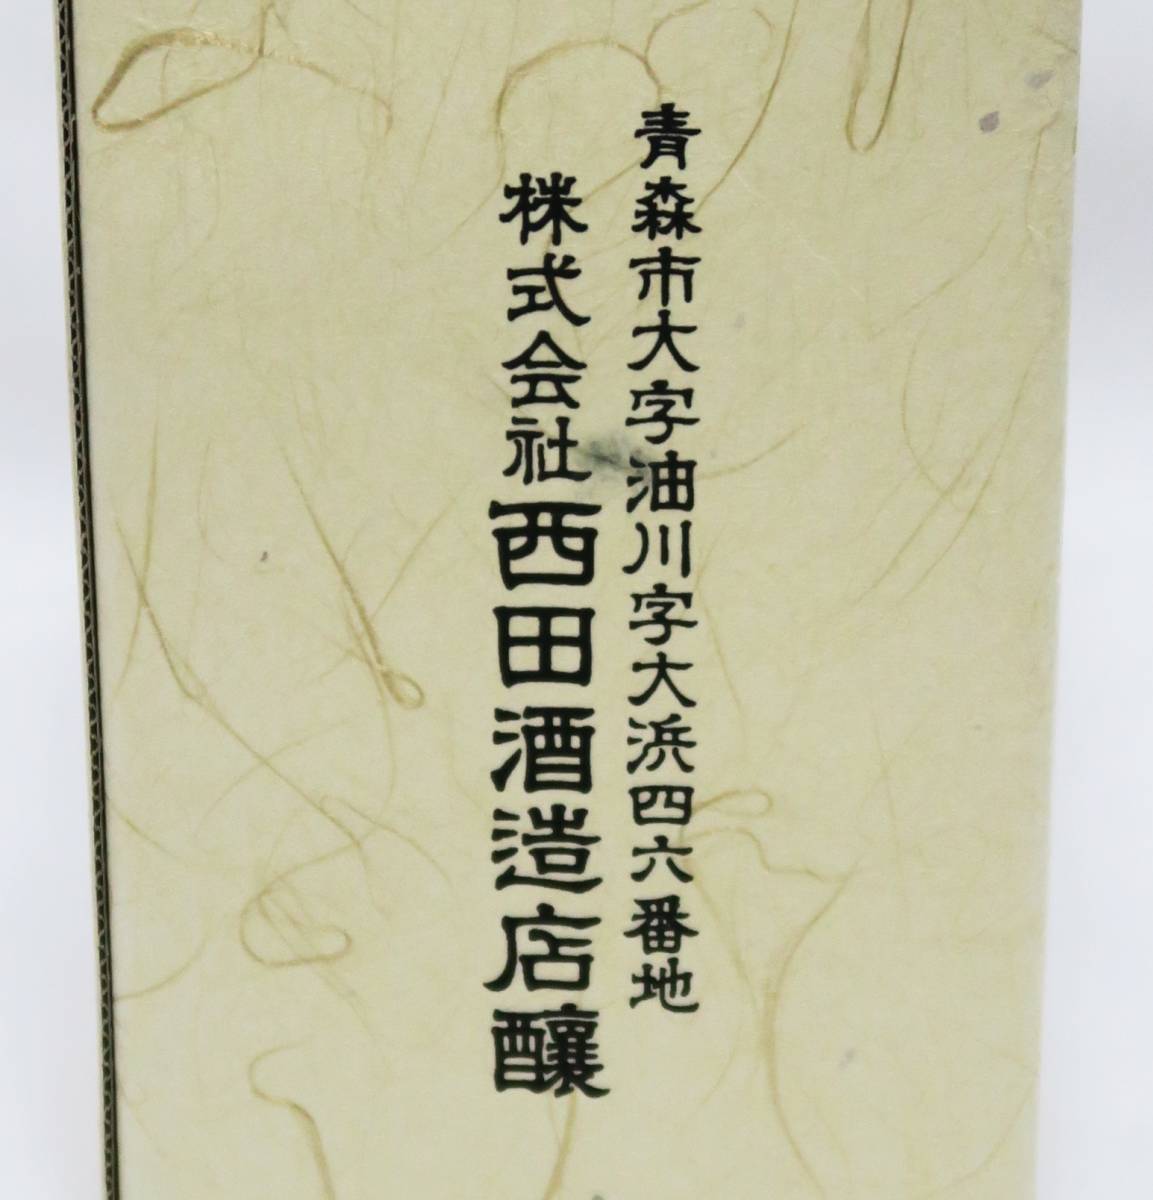 青森市大字油川字大浜四六番地
株式会社西田酒造店醸